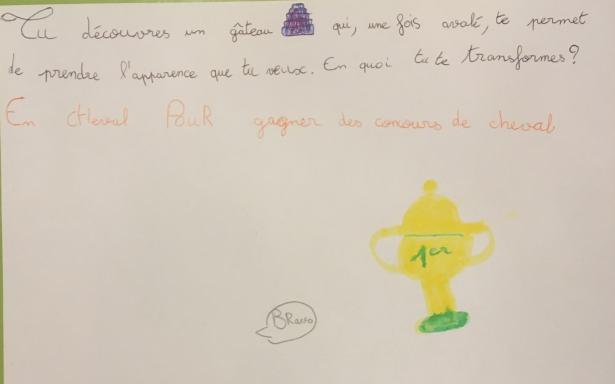 Tu découvres un gâteau qui, une fois avalé, te permet
de prendre l'apparence que tu veux. En quoi tu te transformes?
En cHeval PouR gagner des concours de cheval
1er
BRavo